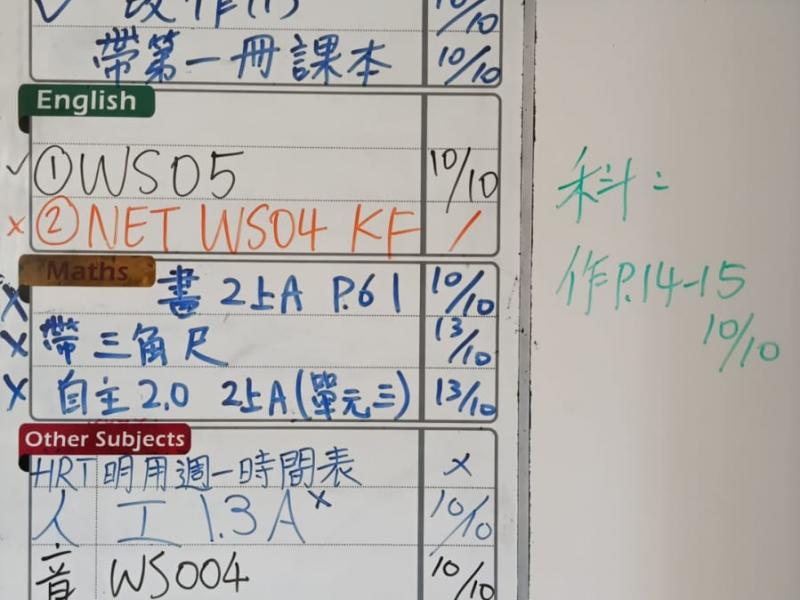 ✓ 改作(1) 10/10
帶第一冊課本 10/10
English
✓ ①WS05 10/10
x ②NET WS04 KF /
Maths
x 書 2上A P.61 10/10
x 帶三角尺 13/10
x 自主2.0 2上A(單元三) 13/10
Other Subjects
HRT 明用週一時間表 x
人 工 1.3A x 10/10
音 WS004 10/10
科:
作P.14-15
10/10